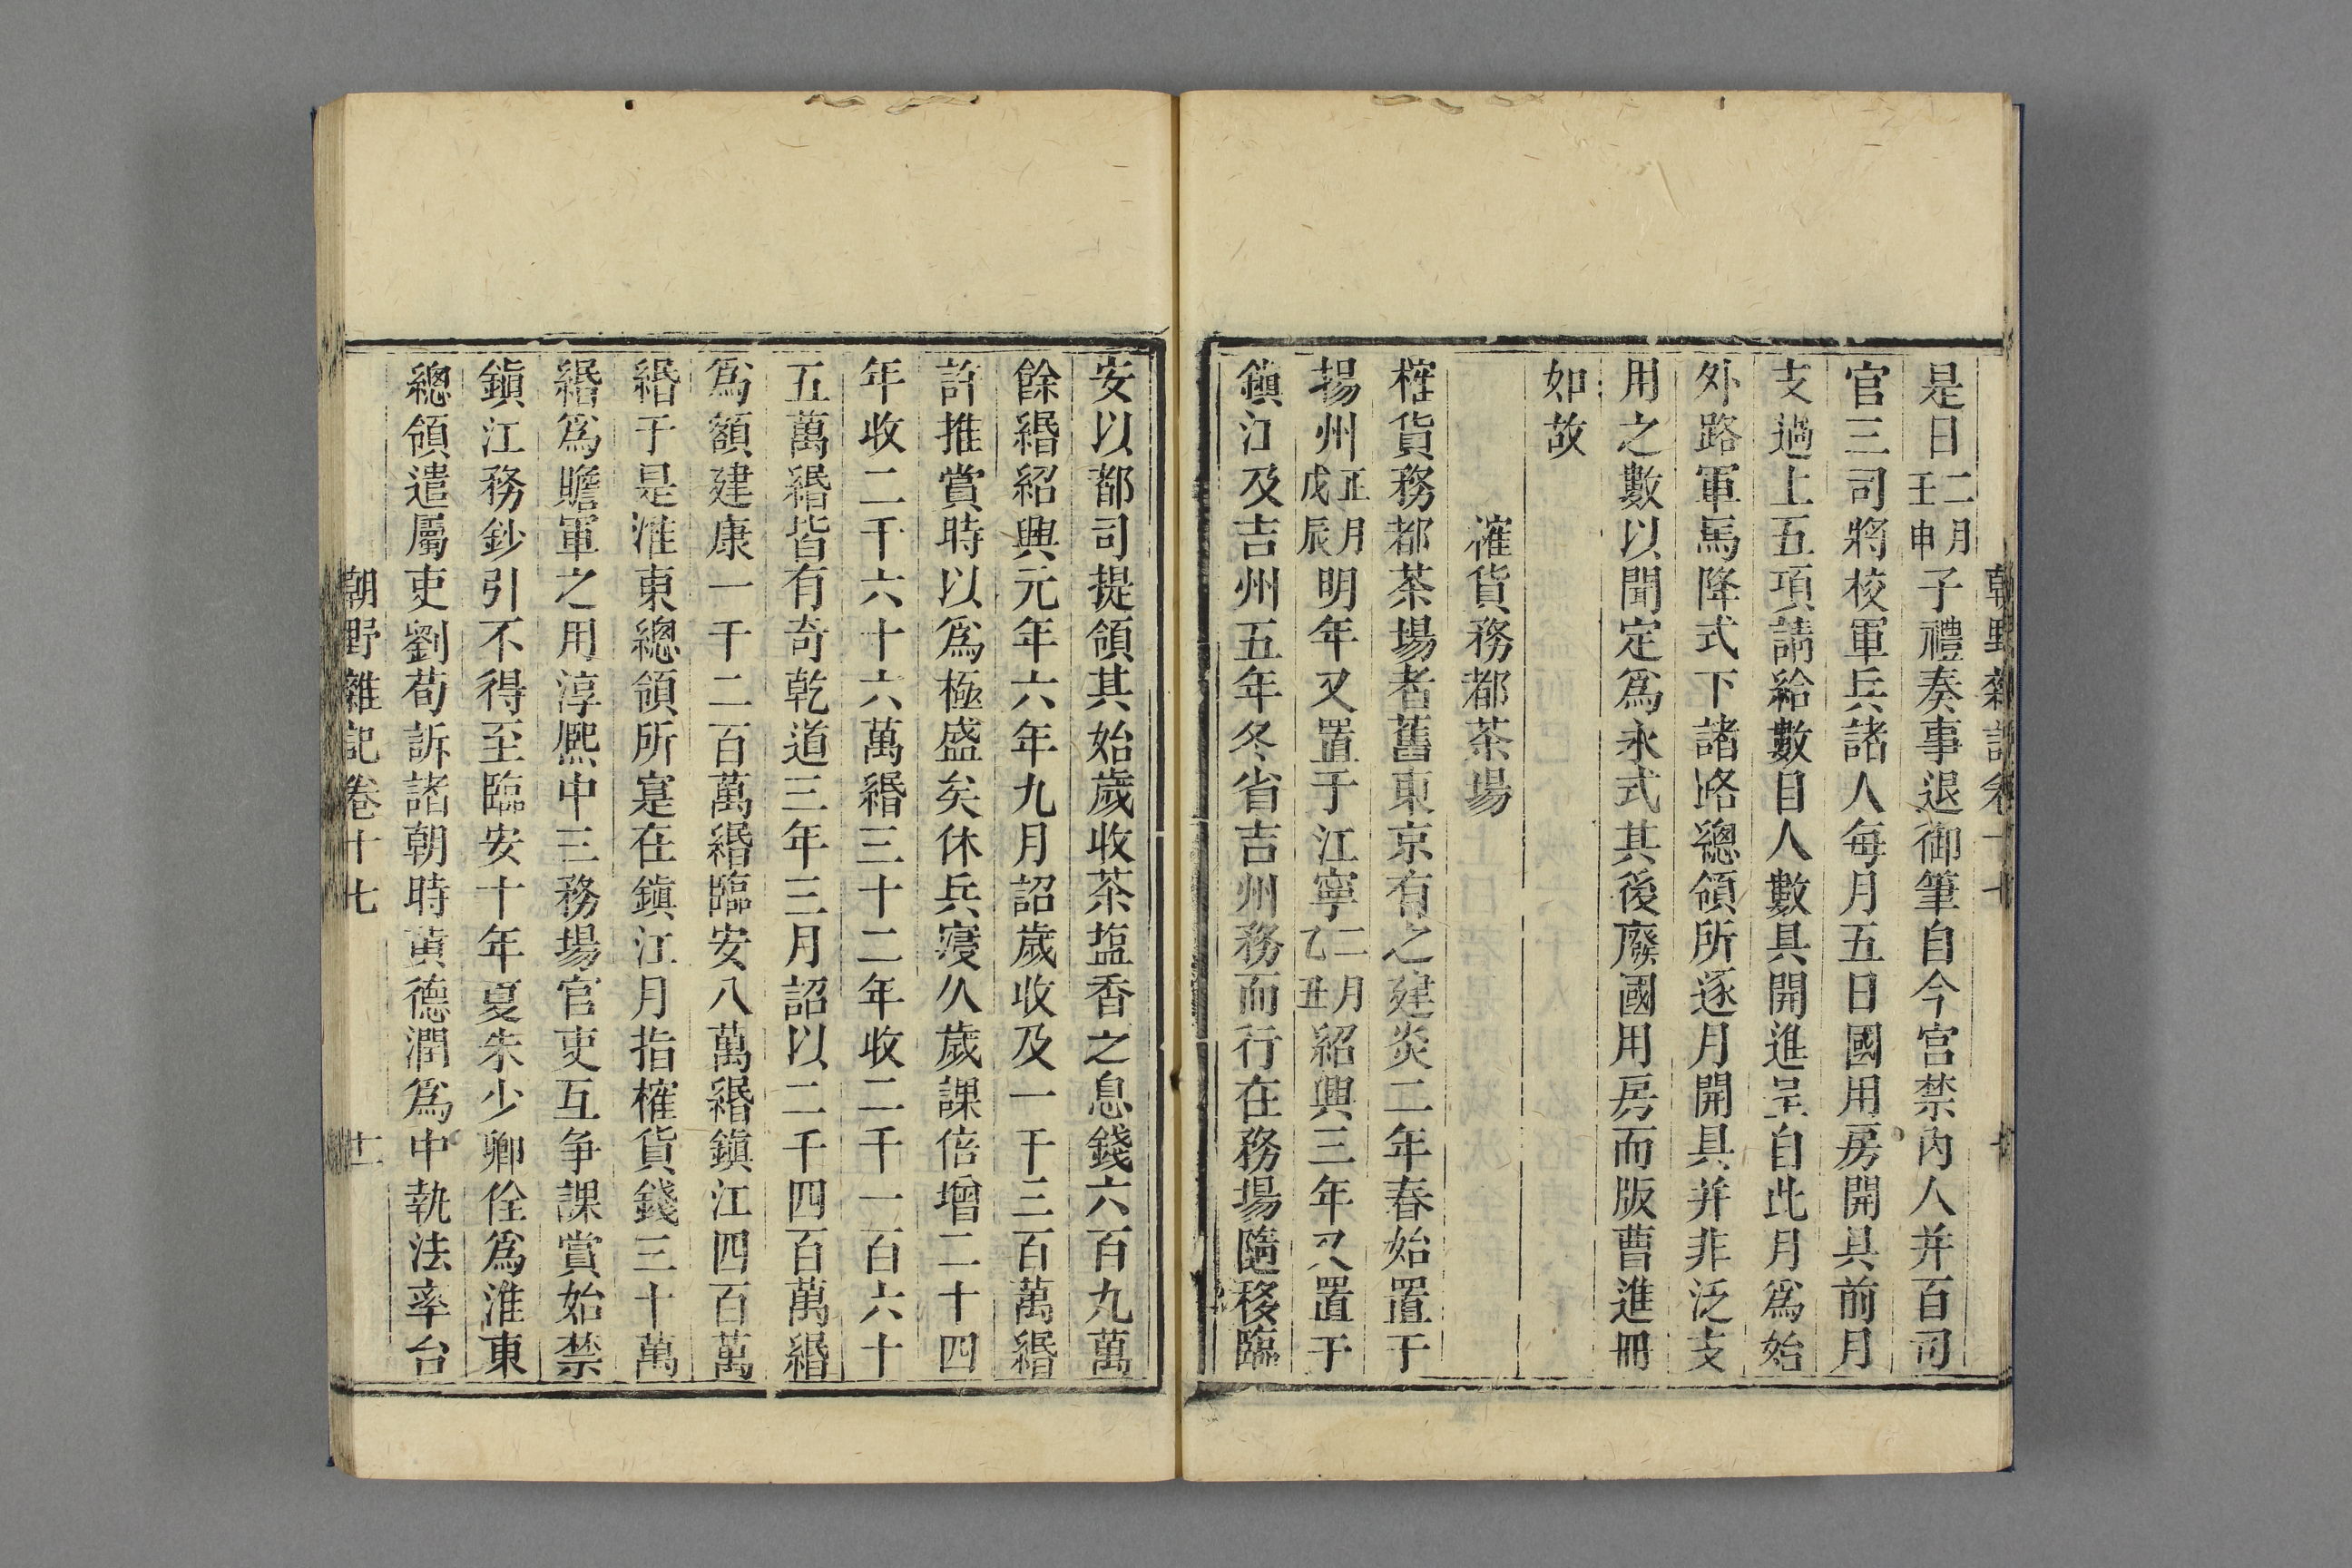 是日二月壬申子禮奏事退御筆自今宫禁内人并百司
官三司將校軍兵諸人每月五日國用房開具前月
支過上五項請給數目人數具開進呈自此月爲始
外路軍馬降式下諸路總領所逐月開具并非泛支
用之數以聞定爲永式其後廢國用房而版曹進冊
如故
榷貨務都茶場
榷貨務都茶場者舊東京有之建炎二年春始置于
揚州正月戊辰明年又置于江寧二月乙丑紹興三年又置于
鎭江及吉州五年冬省吉州務而行在務場隨移臨
安以都司提領其始歲收茶塩香之息錢六百九萬
餘緡紹興元年六年九月詔歲收及一千三百萬緡
許推賞時以爲極盛矣休兵寖久歲課倍增二十四
年收二千六十六萬緡三十二年收二千一百六十
五萬緡皆有奇乾道三年三月詔以二千四百萬緡
爲額建康一千二百萬緡臨安八萬緡鎭江四百萬
緡于是淮東總領所寔在鎭江月指榷貨錢三十萬
緡爲贍軍之用淳熈中三務場官吏互争課賞始禁
鎭江務鈔引不得至臨安十年夏朱少卿佺爲淮東
總領遣屬吏劉荀訴諸朝時黄德潤爲中執法率台
朝野雜記卷十七
十一